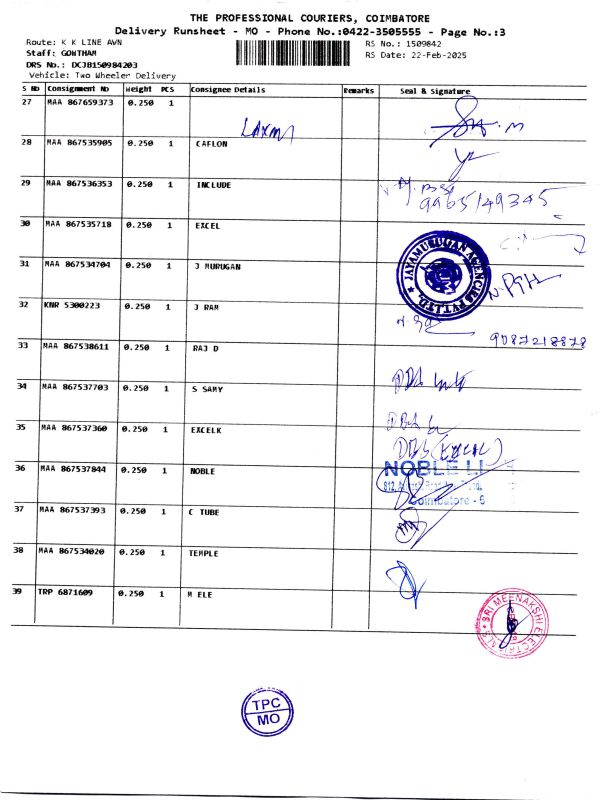 THE PROFESSIONAL COURIERS, COIMBATORE
Delivery Runsheet - MO - Phone No.:0422-3505555 - Page No.:3
Route: K K LINE AVN
Staff: GOWTHAM
DRS No.: DCJB150984203
Vehicle: Two Wheeler Delivery
RS No.: 1509842
RS Date: 22-Feb-2025
S No Consignment No Weight PCS Consignee Details Remarks Seal & Signature
27 MAA 867659373 0.250 1
Laxmi
28 MAA 867535905 0.250 1 CAFLON
29 MAA 867536353 0.250 1 INCLUDE
9965149345
30 MAA 867535718 0.250 1 EXCEL
31 MAA 867534704 0.250 1 J MURUGAN
JAYAMURUGAN AGENCIES PVT.LTD.
32 KNR 5300223 0.250 1 J RAM
9087218878
33 MAA 867538611 0.250 1 RAJ D
34 MAA 867537703 0.250 1 S SAMY
35 MAA 867537360 0.250 1 EXCELK
36 MAA 867537844 0.250 1 NOBLE
NOBLE
Coimbatore - 6
37 MAA 867537393 0.250 1 C TUBE
38 MAA 867534020 0.250 1 TEMPLE
39 TRP 6871609 0.250 1 M ELE
SRI MEENAKSHI ELECTRICALS
TPC
MO